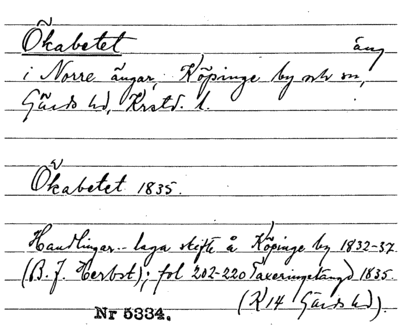 Ökabetet äng
i Norre ängar, Köpinge by och sn,
Gärds hd, Krstd. l.
Ökabetet 1835.
Handlingar .. laga skifte å Köpinge by 1832-37
(B. J. Herbst); fol 202-220 Taxeringslängd 1835.
(K 14 Gärds hd).
Nr 5334.